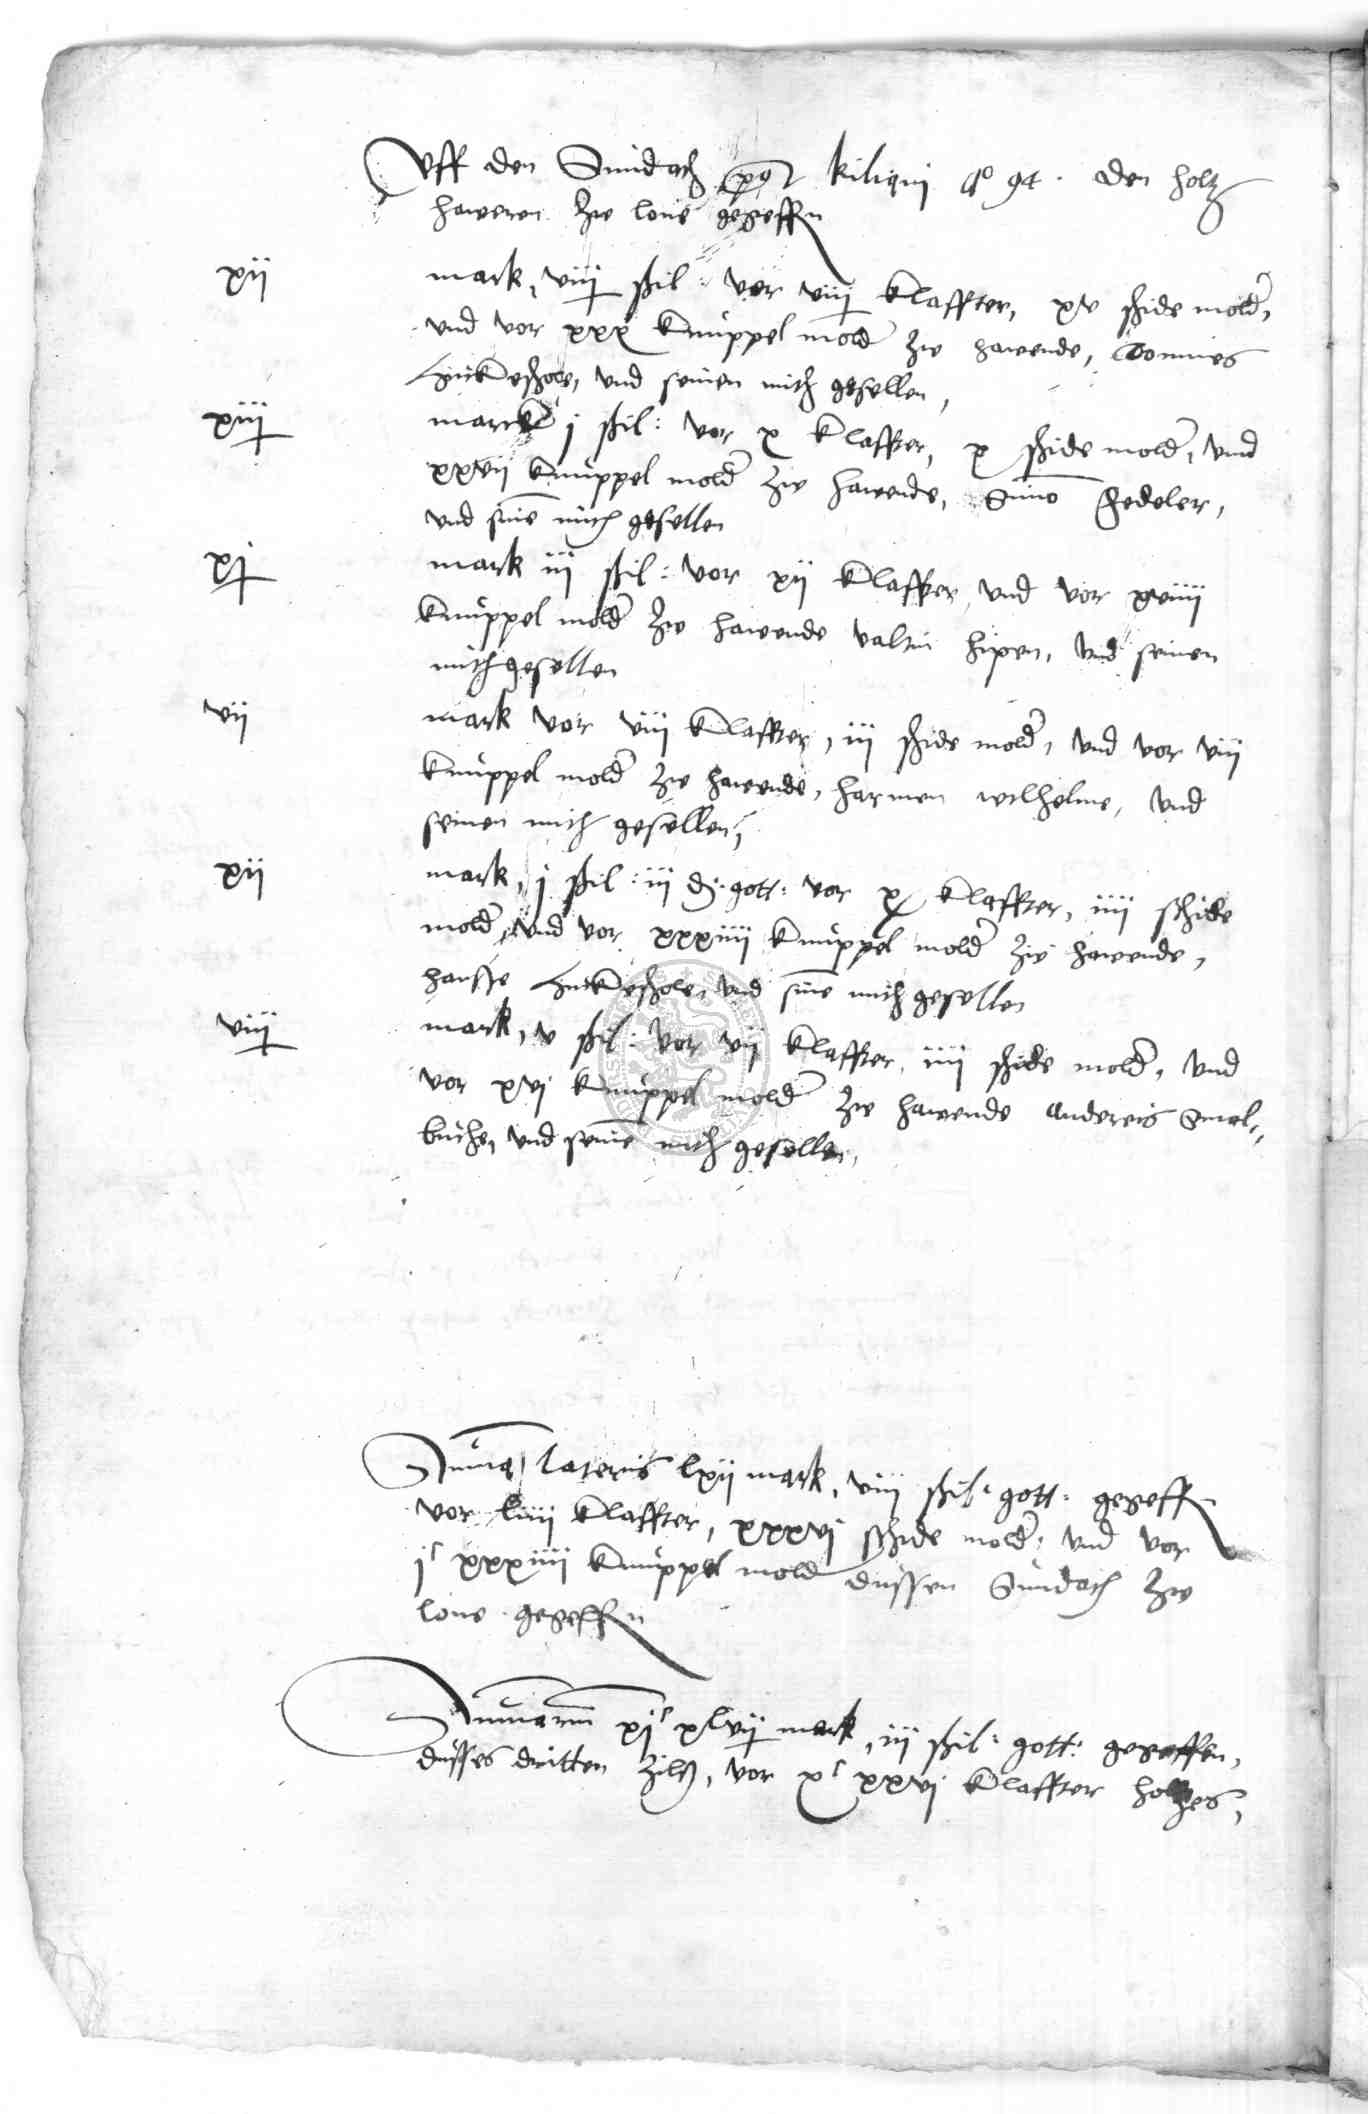 Uff den Sundach post kiliani ao 94. den holtz
haweren zu lone gegeffen
xii mark, viiÿ sßil: vor viiÿ klaffter, xv schide molder,
und vor xxx knuppel molder zu hawende, Tonnies
und seinen mith gesellen,
xiiÿ marck j sßil: vor x klaffter, x schide molder, und
xxvii knuppel molder zu hawende, Simo Fedeler,
und sine mith gesellen
xÿ mark iii sßil: vor xii klaffter, und vor xviiii
knuppel molder zu hawende valtin hipen, und seinen
mith gesellen
vii mark vor viii klaffter, iii schide molder, und vor viii
knuppel molder zu hawende, harmen wilhelme, und
seinen mith gesellen,
xii mark, j sßil: iii d. gott: vor x klaffter, iiii schide
molder, und vor xxxiiii knuppel molder zu hawende,
hansße und sine mith gesellen
viiÿ mark, v sßil: vor vii klaffter, iiii schide molder, und
vor xvi knuppel molder zu hawende andereis Smel-
buche, und seine mith gesellen,
Summa lateris lxii mark, viii sßil: gott: gegeffen
vor liiii klaffter, xxxvi schide molder, und vor
jc xxxiiii knuppel molder dussen Sundach zu
lone gegeffen
Summarum xjc xlvii mark, iii sßil: gott: gegeffen,
dusses dritten zils, vor xc xxvi klaffter holtzes,